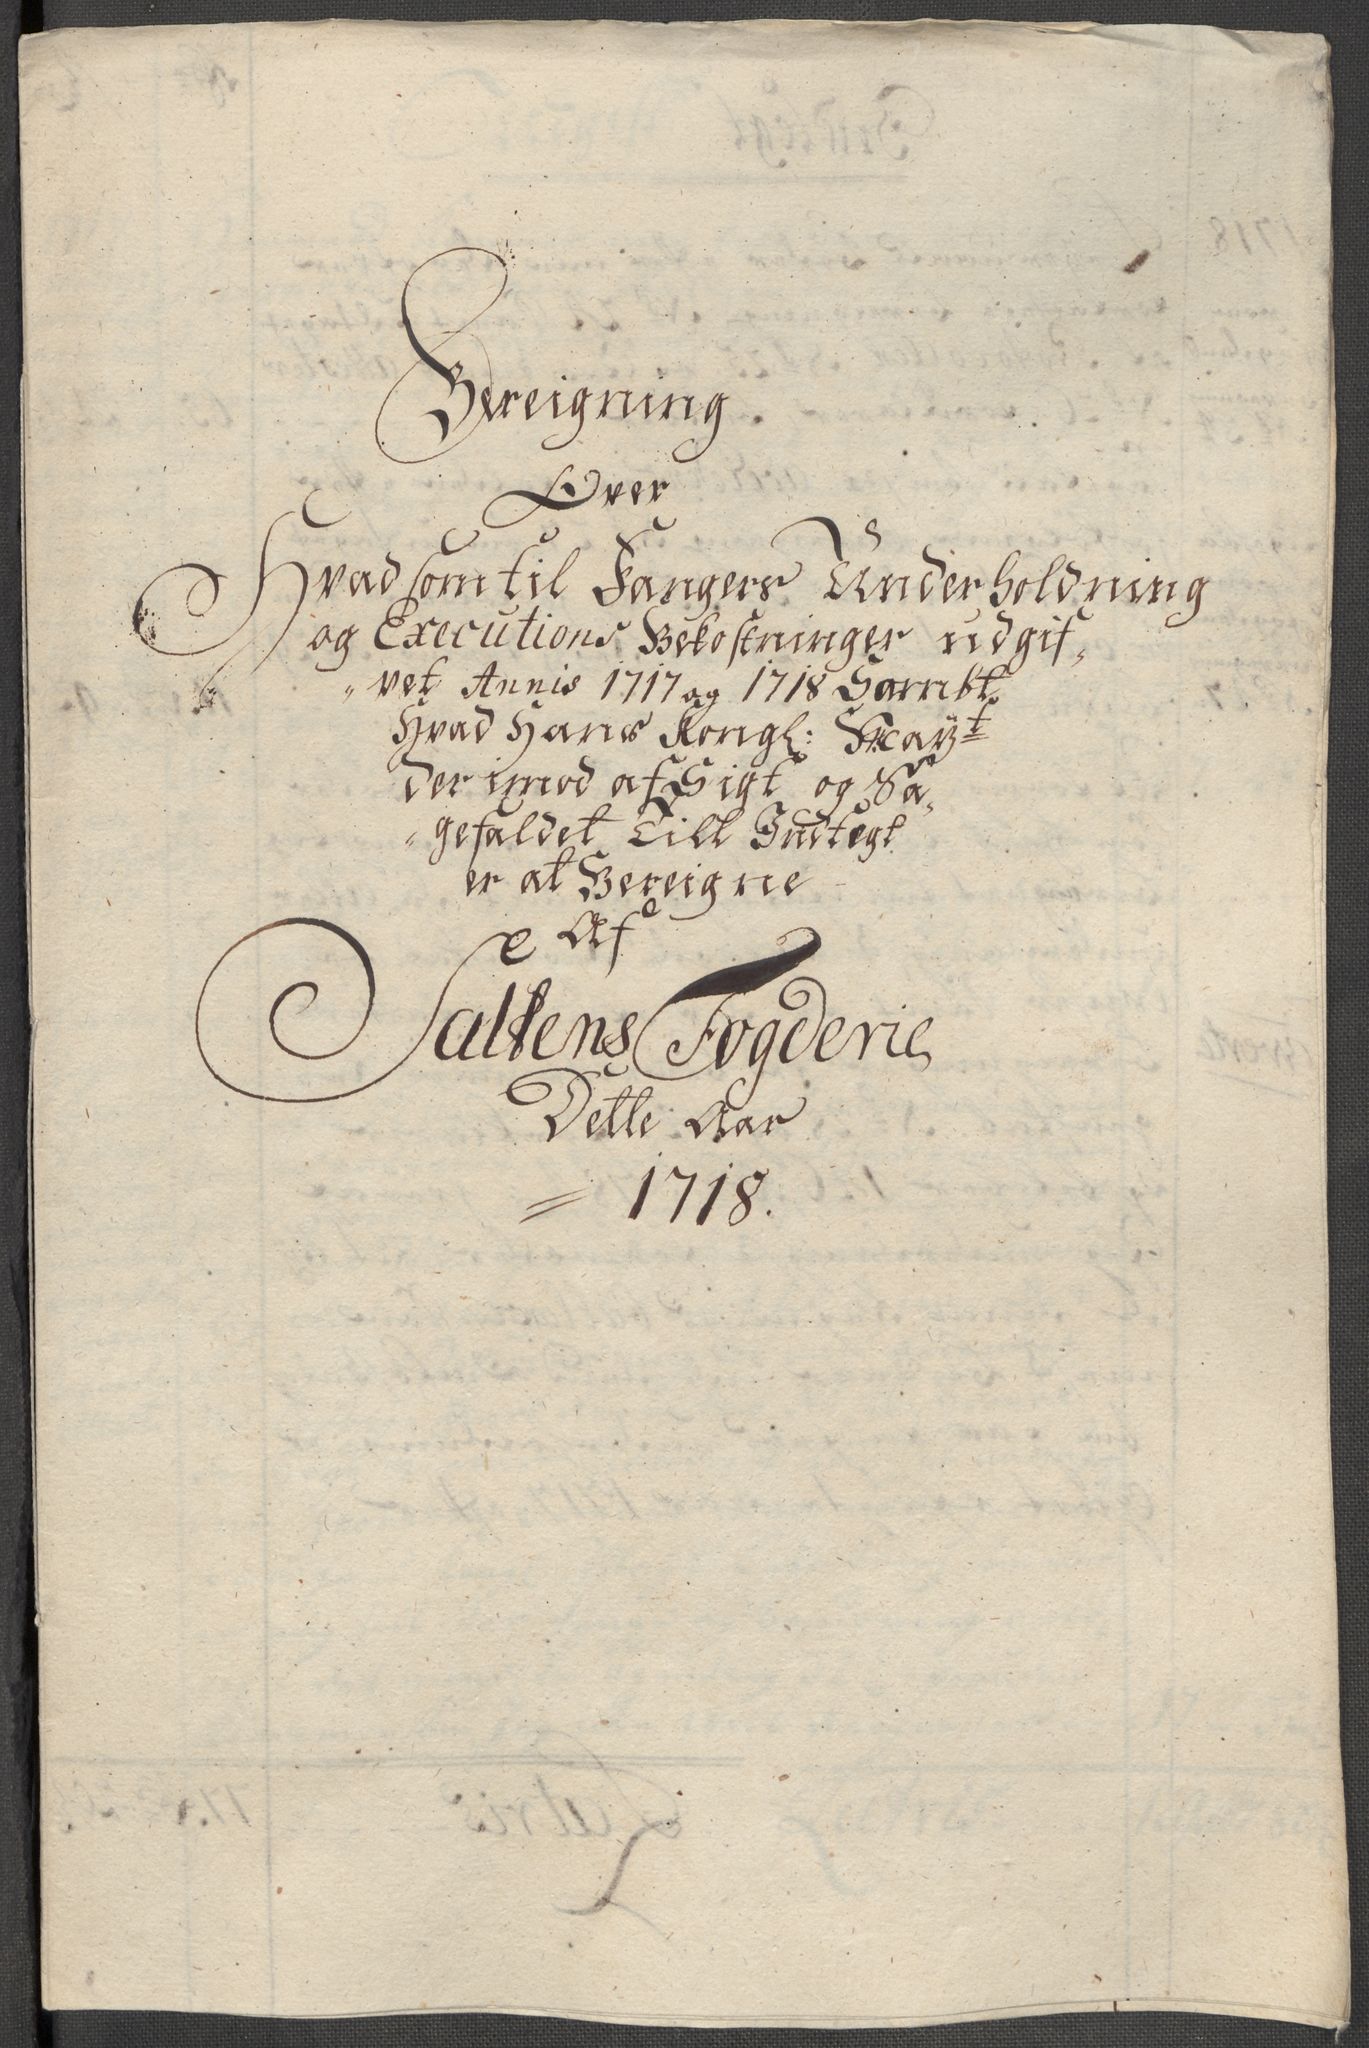 Bereigning
Over
Hvad som til Fangers Underholdning
og Executions Bekostninger udgif„
„vet Annis 1717 og 1718 Sambt
Hvad Hans Kongl: Mayt
der imod af Sigt og Sa„
„gefaldet Till Indtegt
er at Bereigne
Af
Saltens Fogderie
Dette Aar
= 1718.